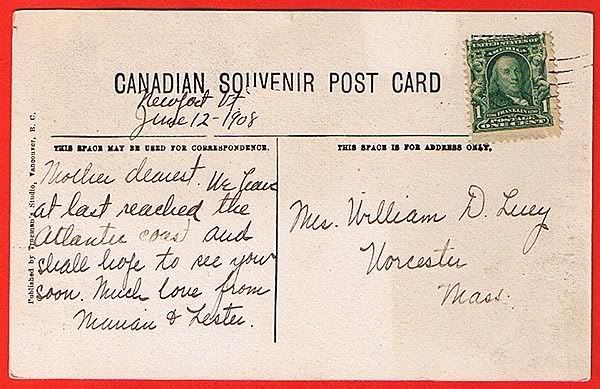 UNITED STATES OF AMERICA
1 1
FRANKLIN
POSTAGE
ONE CENT
CANADIAN SOUVENIR POST CARD
Newport Vt.
June 12-1908
THIS SPACE MAY BE USED FOR CORRESPONDENCE.
THIS SPACE IS FOR ADDRESS ONLY.
Mother dearest. We have
at last reached the
Atlantic coast and
shall hope to see you
soon. Much love from
Marian & Lester.
Mrs. William D. Lucy
Worcester
Mass.
Published by Trueman's Studio, Vancouver, B. C.